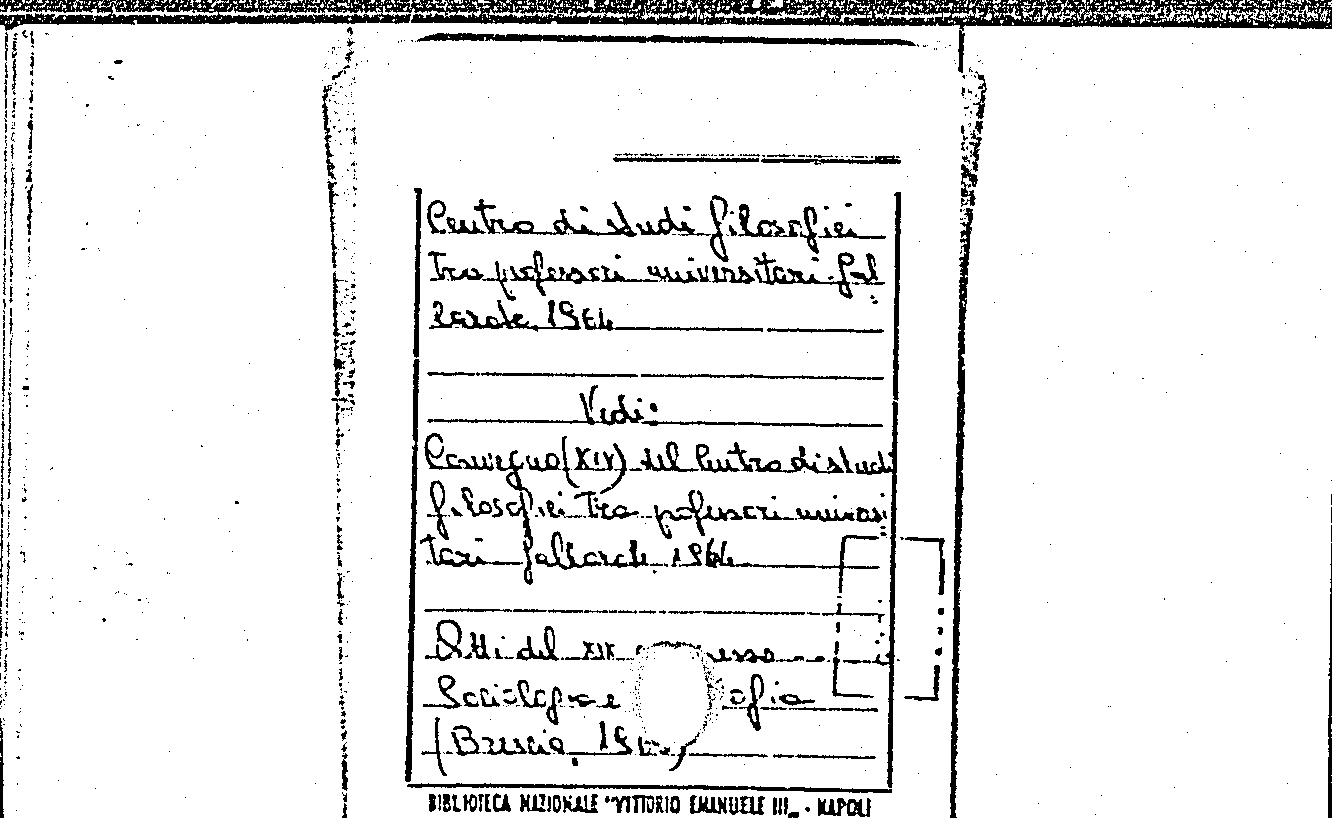 Centro di studi filosofici
tra professori universitari. Gal
larate. 1964
Vedi:
Convegno (XIX) del Centro di studi
filosofici tra professori universi
tari. Gallarate. 1964
Atti del XIX
Sociologia e
(Brescia,
BIBLIOTECA NAZIONALE "VITTORIO EMANUELE III„ - NAPOLI